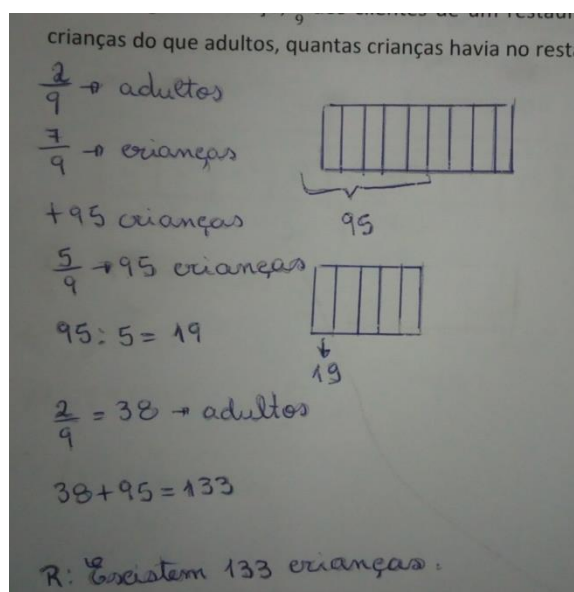 9 clientes de um
crianças do que adultos, quantas crianças havia no
2/9 → adultos
7/9 → crianças
+95 crianças
95
5/9 → 95 crianças
95 : 5 = 19
19
2/9 = 38 → adultos
38 + 95 = 133
R: Existem 133 crianças.